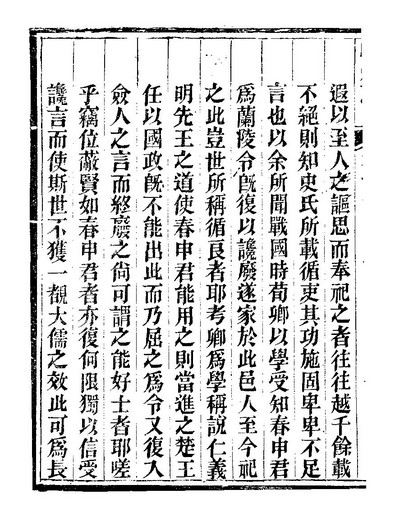 遐以至人之謳思而奉祀之者往往越千餘載
不絕則知史氏所載循吏其功施固卑卑不足
言也以余所聞戰國時荀卿以學受知春申君
爲蘭陵令旣復以讒廢遂家於此邑人至今祀
之此豈世所稱循良者耶考卿爲學稱說仁義
明先王之道使春申君能用之則當進之楚王
任以國政旣不能出此而乃屈之爲令又復入
僉人之言而終廢之尙可謂之能好士者耶嗟
乎竊位蔽賢如春申君者亦復何限獨以信受
讒言而使斯世不獲一觀大儒之效此可爲長